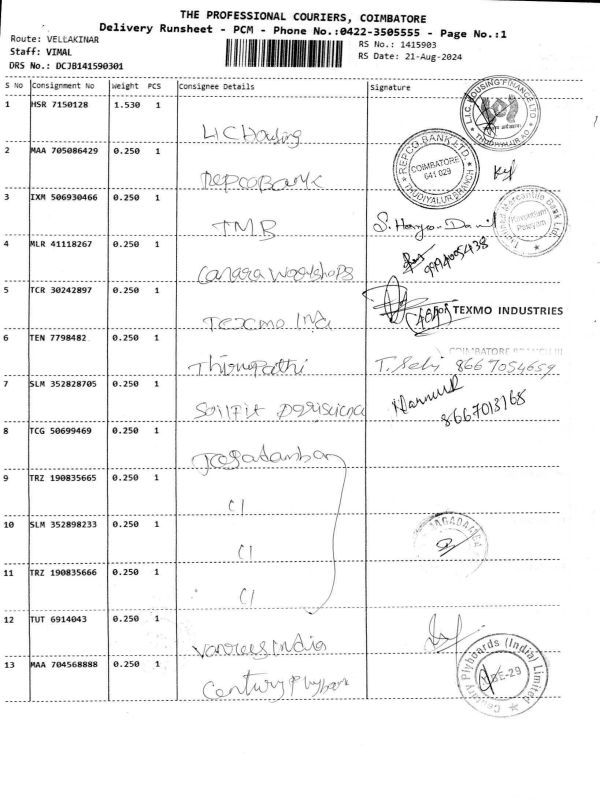 THE PROFESSIONAL COURIERS, COIMBATORE
Delivery Runsheet - PCM - Phone No.:0422-3505555 - Page No.:1
Route: VELLAKINAR
RS No.: 1415903
Staff: VIMAL
RS Date: 21-Aug-2024
DRS No.: DCJB141590301
S No Consignment No Weight PCS Consignee Details Signature
1 HSR 7150128 1.530 1 LIC Housing
L.I.C. HOUSING FINANCE LTD THUDIYALUR
2 MAA 705086429 0.250 1 REPCO BANK
REPCO BANK LTD. COIMBATORE 641 029 THUDIYALUR BRANCH
3 IXM 506930466 0.250 1 TMB
Mercantile Bank Ltd.
4 MLR 41118267 0.250 1 Canara Workshops
9994005438
5 TCR 30242897 0.250 1 Texmo Ind
For TEXMO INDUSTRIES
6 TEN 7798482 0.250 1 Thirupathi
COIMBATORE BRANCH III
T. Selvi 8667054659
7 SLM 352828705 0.250 1
8667013168
8 TCG 50699469 0.250 1 Jegadamban
9 TRZ 190835665 0.250 1 CI
10 SLM 352898233 0.250 1 CI
11 TRZ 190835666 0.250 1 CI
12 TUT 6914043 0.250 1 India
13 MAA 704568888 0.250 1 Century Plybord
Century Plyboards (India) Limited